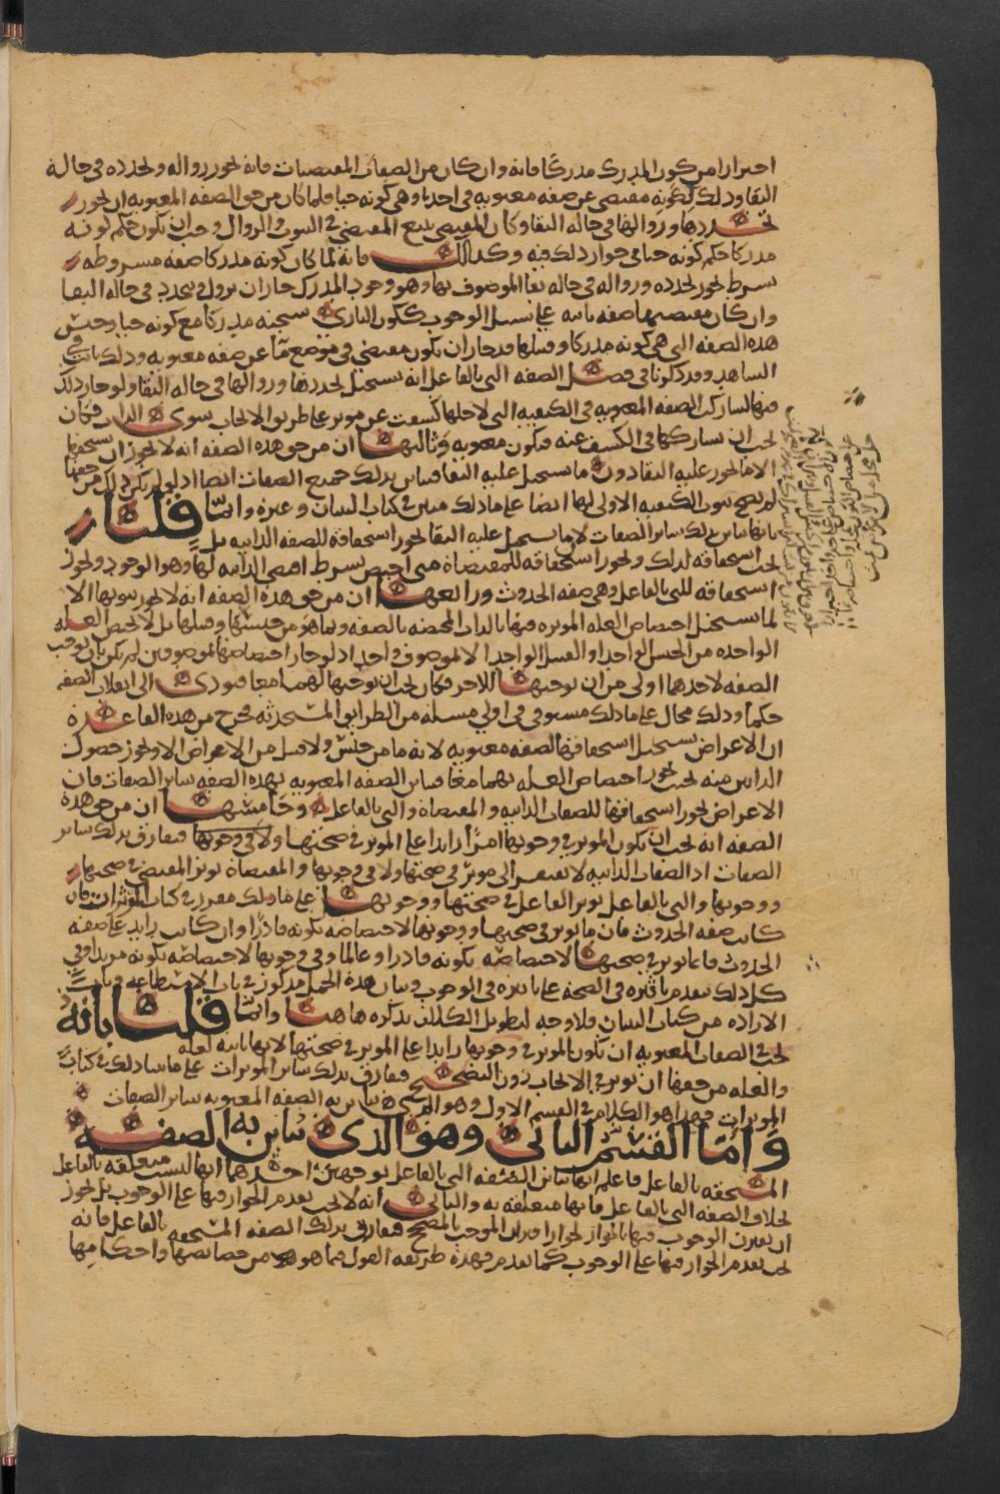 احترازا من كون المدرك مدركا فانه وان كان من الصفات المقتضيات فانه يجوز زواله وتجدده في حالة
البقا وذلك لكونه مقتضى عن صفه معنويه في احدنا وهي كونه حيا فلما كان من حق الصفه المعنويه ان يجوز
تجددها وزوالها في حاله البقا وكان المقتضى يتبع المقتضي في الثبوت والزوال وجب ان يكون حكم كونه
مدركا حكم كونه حيا في جواز ذلك فيه وكذلك فانه لما كان كونه مدركا صفه مشروطه
بشرط يجوز تجدده وزواله في حاله بقا الموصوف بها وهو وجود المدرك جاز ان يزول ويتجدد في حاله البقا
وان كان مقتضيها صفه ثابته على سبيل الوجوب ككون الباري سبحنه مدركا مع كونه حيا وجنس
هذه الصفه التي هي كونه مدركا وقبيلها قد جاز ان يكون مقتضى في موضع ما عن صفه معنويه وذلك ثابت في
الشاهد وقد ذكرنا في فصل الصفه التي بالفاعل انه يستحيل تجددها وزوالها في حاله البقا ولو جاز ذلك
فيها لشاركت الصفه المعنويه في الكيفيه التي لاجلها كشفت عن موثر على طريق الايجاب سوى الذات فكان
يجب ان تشاركها في الكشف عنه فتكون معنويه وثالثها ان من حق هذه الصفه انه لا يجوز ان يستحقها
الا ما يجوز عليه البقا دون ما يستحيل عليه البقا فتباين بذلك جميع الصفات ايضا اذ لو لم يكن ذلك من حقها
لم يصح ثبوت الكيفيه الاولى لها ايضا على ما ذلك مبين في كتاب البيان وغيره وانما قلنا
بانها تباين بذلك ساير الصفات لان ما يستحيل عليه البقا يجوز استحقاقه للصفه الذاتيه بل
يجب استحقاقه لذلك ويجوز استحقاقه للمقتضاة متى اختص بشرط اقتضى الذاتيه لها وهو الوجود ويجوز
استحقاقه للتي بالفاعل وهي صفه الحدوث ورابعها ان من حق هذه الصفه انه لا يجوز ثبوتها الا
لما يستحيل اختصاص العله الموثره فيها بالذات المختصه بالصفه وبما هو من جنسها وقبيلها بل لا تختص العله
الواحده من الجنس الواحد او القبيل الواحد الا لموصوف واحد اذ لو جاز اختصاصها لموصوفين لم تكن بان توجب
الصفه لاحدهما اولى من ان توجبها للاخر فكان يجب ان توجبها لهما معا فيودي الى انقلاب الصفه
حكما وذلك محال على ما ذلك مستوفى في اولى مسئله من الطرايق المستحدثه فخرج من هذه القاعدة
ان الاعراض يستحيل استحقاقها لصفه معنويه لانه ما من جنس ولا قبيل من الاعراض الا ويجوز حصول
الذاتين منه بحيث يجوز اختصاص العله بهما معا فتباين الصفه المعنويه بهذه الصفه ساير الصفات فان
الاعراض يجوز استحقاقها للصفات الذاتيه والمقتضاة والتي بالفاعل وخامسها ان من حق هذه
الصفه انه يجب ان يكون الموثر في وجوبها امرا زايدا على الموثر في صحتها ولا في وجوبها فتفارق بذلك ساير
الصفات اذ الصفات الذاتيه لا تفتقر الى موثر في صحتها ولا في وجوبها والمقتضاة يوثر المقتضي في صحتها
ووجوبها والتي بالفاعل يوثر الفاعل في صحتها ووجوبها على ما ذلك مقرر في كتاب الموثرات فان
كانت صفه الحدوث فان ما يوثر في صحتها ووجوبها لاختصاصه بكونه قادرا وان كانت زايده على صفه
الحدوث فانما يوثر في صحتها لاختصاصه بكونه قادرا او عالما وفي وجوبها لاختصاصه بكونه مريدا وفي
كل ذلك يتقدم تاثيره في الصحه على تاثيره في الوجوب وبيان هذه الجمل مذكور في باب الاستطاعه وباب
الاراده من كتاب البيان فلا وجه لتطويل الكلام بذكره هاهنا وانما قلنا بانه
يجب في الصفات المعنويه ان يكون الموثر في وجوبها زايدا على الموثر في صحتها لانها ثابته لعله
والعله من حقها ان توثر في الايجاب دون التصحيح فتفارق بذلك ساير الموثرات على ما بينا ذلك في كتاب
الموثرات فهذا هو الكلام في القسم الاول وهو الذي تباين به الصفه المعنويه ساير الصفات
وأما القسم الثاني وهو الذي تباين به الصفه
المستحقه بالفاعل فاعلم انها تباين الصفه التي بالفاعل بوجهين احدهما انها ليست متعلقه بالفاعل
بخلاف الصفه التي بالفاعل فانها متعلقه به والثاني انه لا يجب تقدم الجواز فيها على الوجوب بل يجوز
ان يقترن الوجوب فيها بالجواز لجواز اقتران الموجب بالمصحح فتفارق بذلك الصفه المستحقه بالفاعل فانه
يجب تقدم الجواز فيها على الوجوب كما تقدم فهذه طريقه القول فيما هو من خصائصها واحكامها